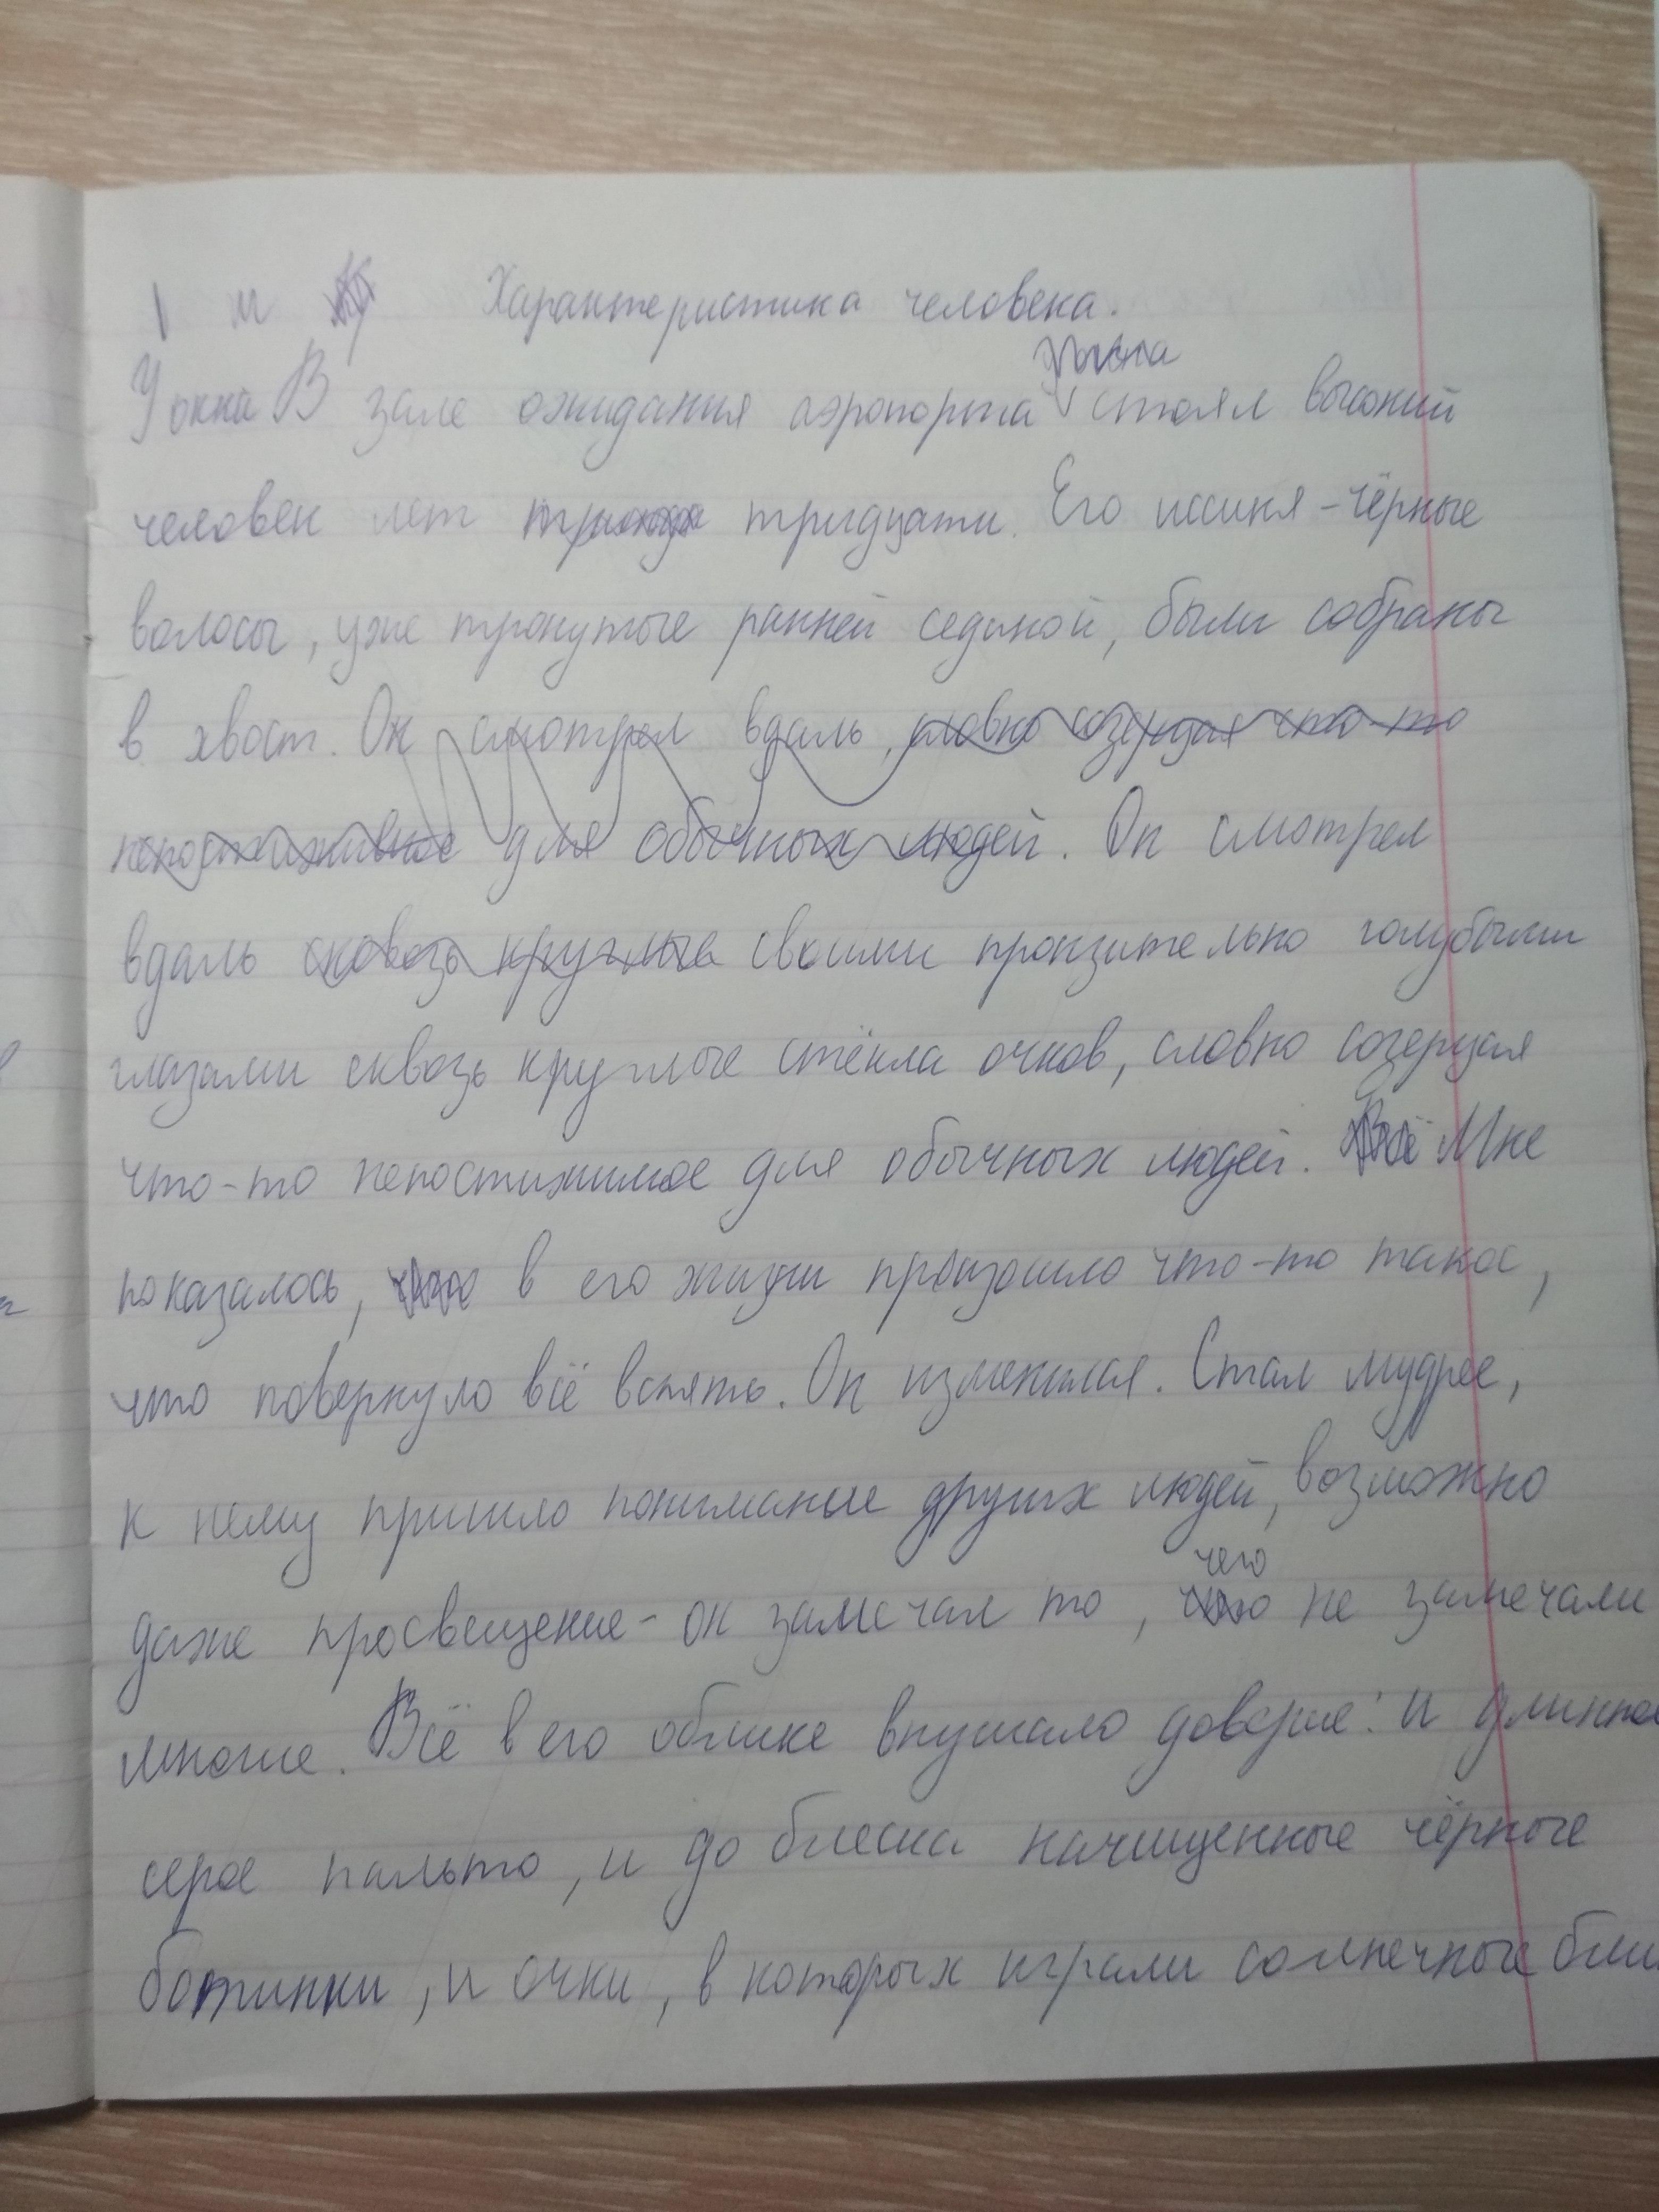 Характеристика человека.
У окна В зале ожидания аэропорта стоял высокий
человек лет тридцати. Его иссиня-чёрные
волосы, уже тронутые ранней сединой, были собраны
в хвост. Он смотрел вдаль, словно созерцая что-то
непостижимое для обычных людей. Он смотрел
вдаль сквозь круглые своими пронзительно голубыми
глазами сквозь круглые стёкла очков, словно созерцая
что-то непостижимое для обычных людей. Всё Мне
показалось, что в его жизни произошло что-то такое,
что повернуло всё вспять. Он изменился. Стал мудрее,
к нему пришло понимание других людей, возможно
чего
даже просвещение - он замечал то, что не замечали
многие. Всё в его облике внушало доверие: и длинное
серое пальто, и до блеска начищенные чёрные
ботинки, и очки, в которых играли солнечные бли